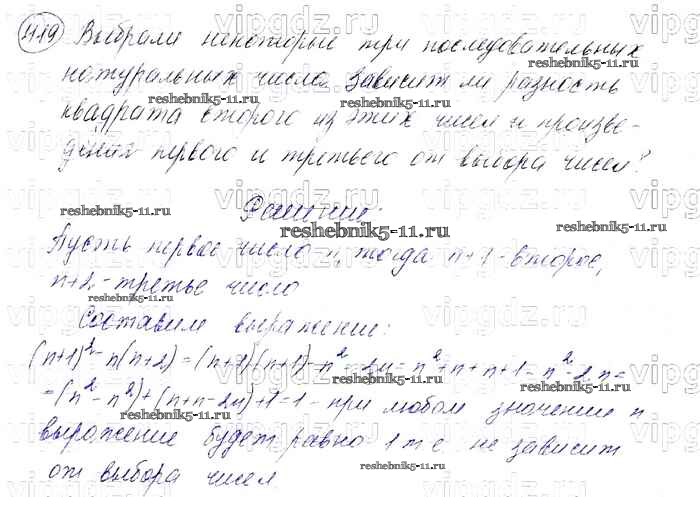 419 Выбрали некоторые три последовательных
натуральных числа. Зависит ли разность
квадрата второго из этих чисел и произве-
дения первого и третьего от выбора чисел?
Решение:
Пусть первое число n, тогда n+1 - второе,
n+2 - третье число
Составим выражение:
(n+1)² - n(n+2) = (n+1)(n+1) - n² - 2n = n² + n + n + 1 = n² - 2n =
= (n² - n²) + (n+n-2n) + 1 = 1 - при любом значении n
выражение будет равно 1 т.е. не зависит
от выбора чисел
vipgdz.ru
reshebnik5-11.ru